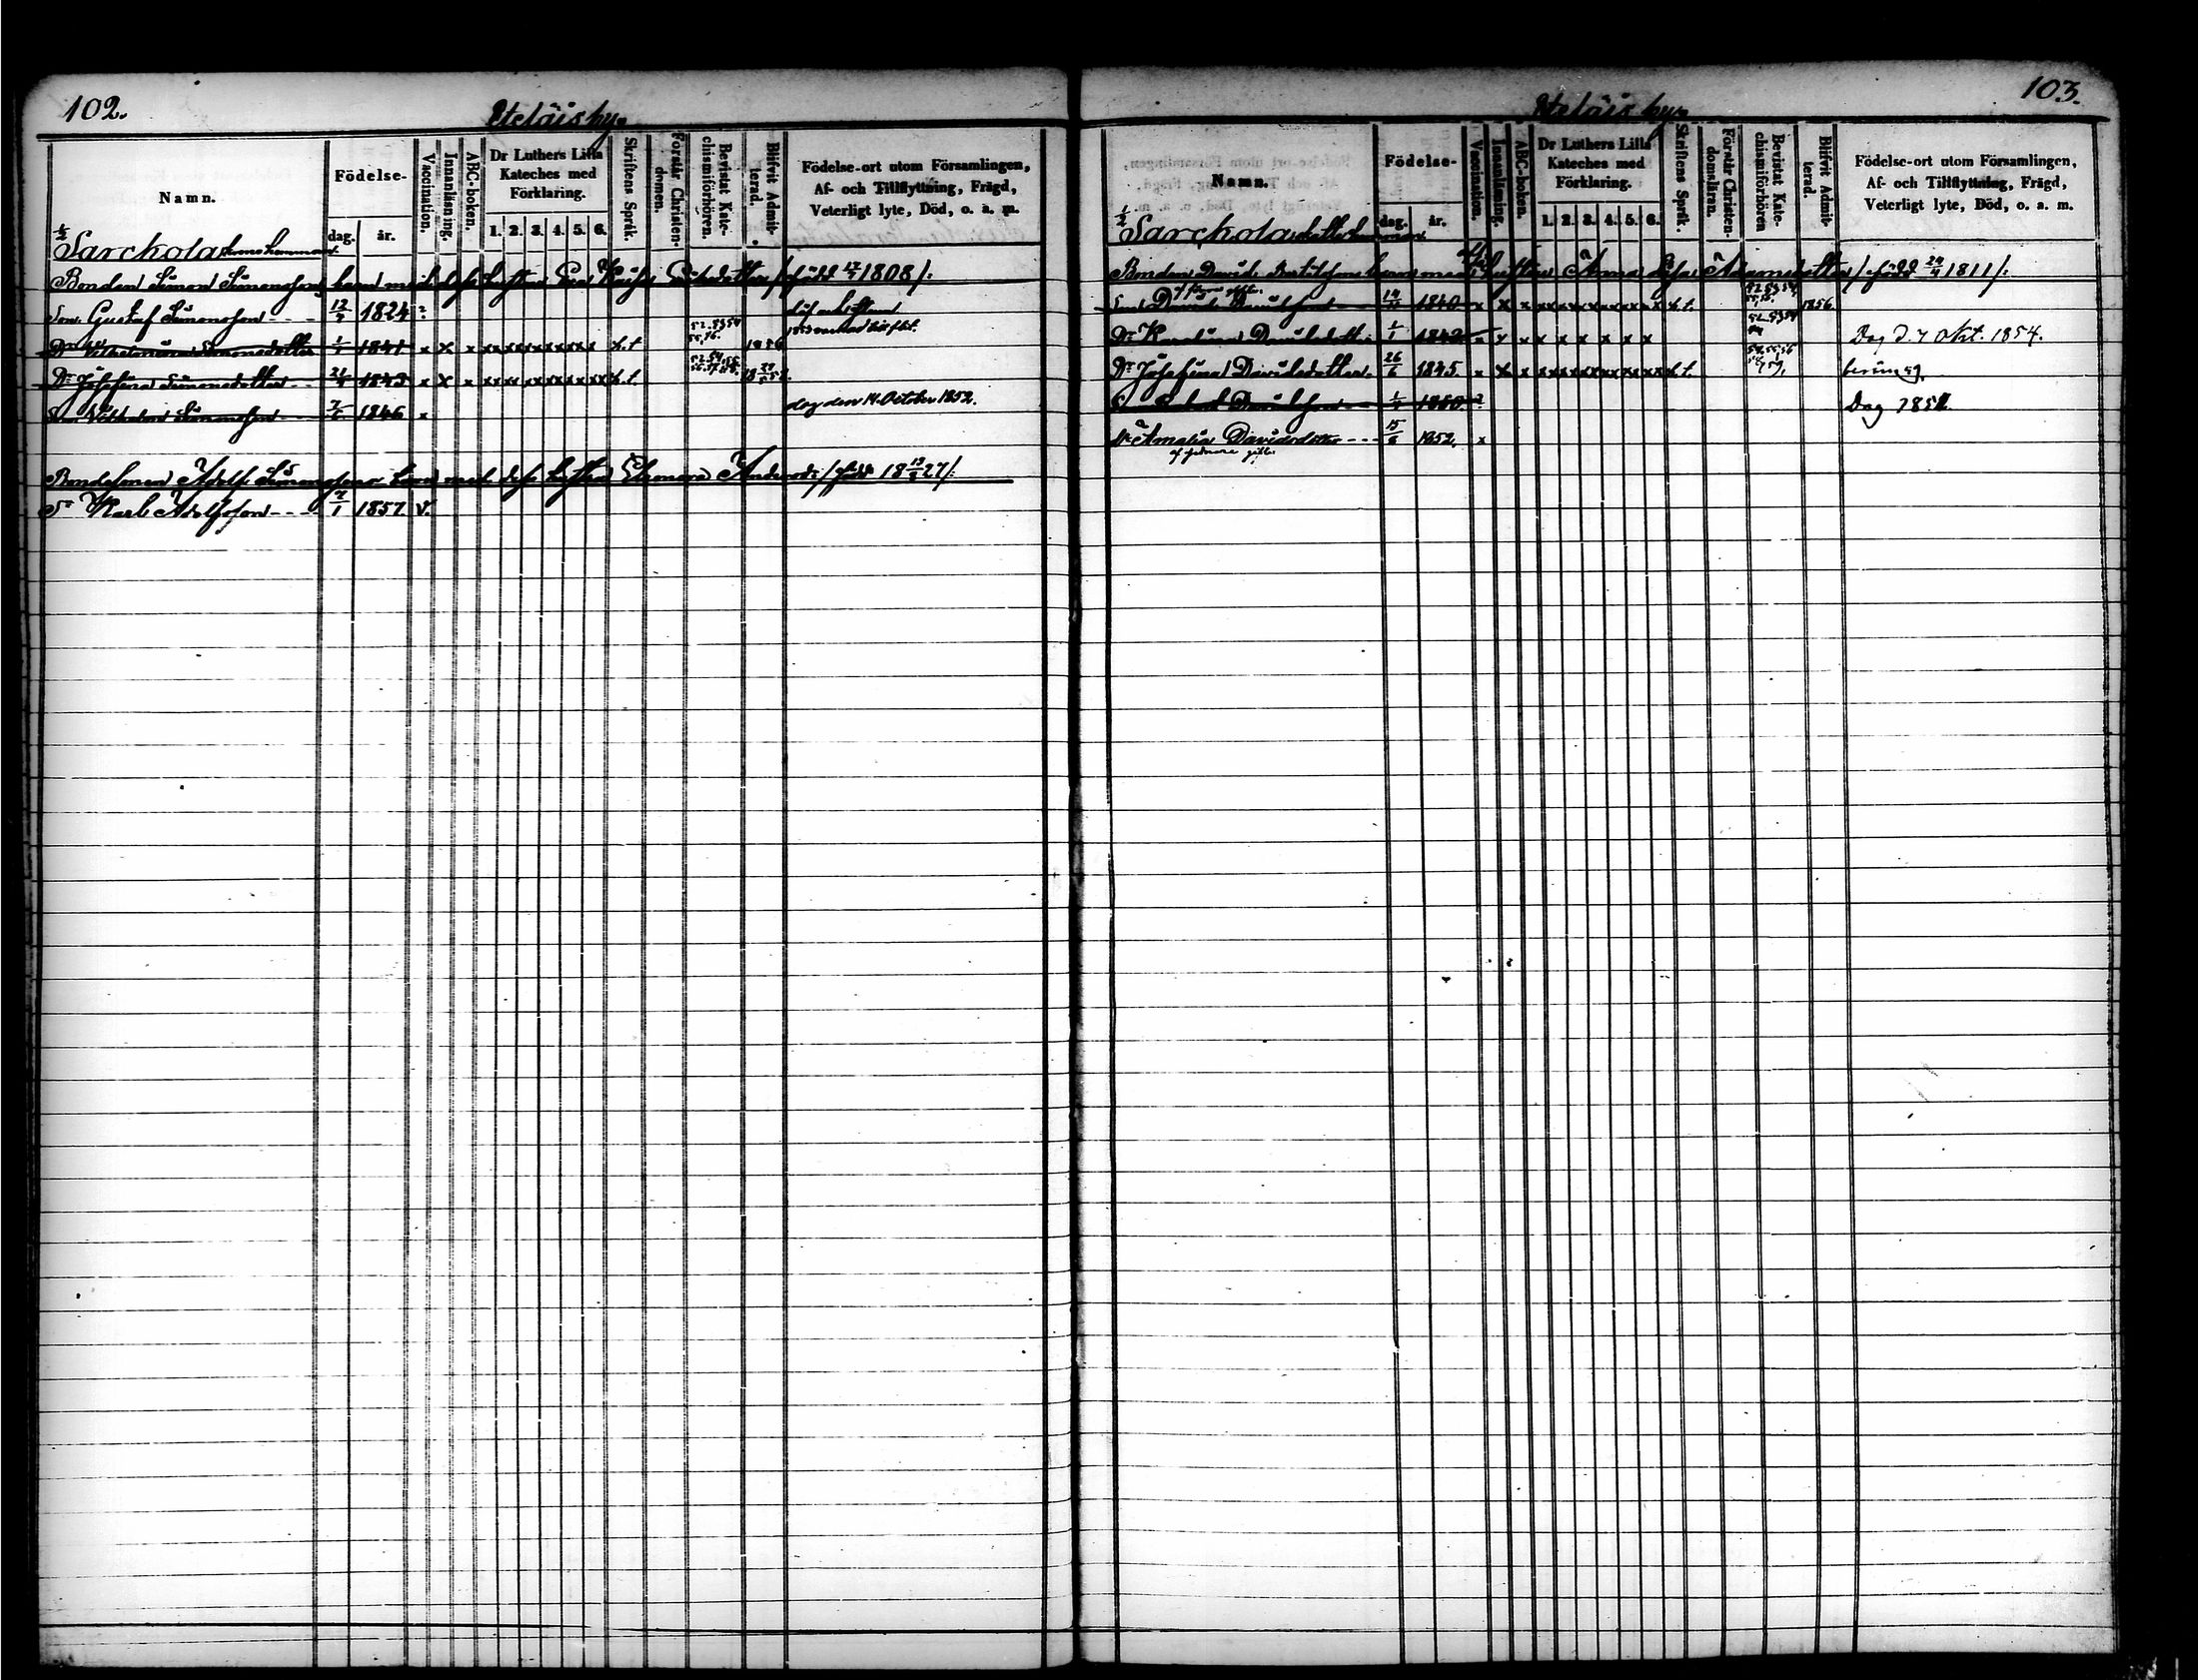 102.
Eteläis by.
Namn.
Födelse-
dag.
år.
Vaccination.
Innanläsning.
ABC-boken.
Dr Luthers Lilla
Kateches med
Förklaring.
1. 2. 3. 4. 5. 6.
Skriftens Språk.
Förstår Christen-
domen.
Bevistat Kate-
chismiförhören.
Blifvit Admit-
terad.
Födelse-ort utom Församlingen,
Af- och Tillflyttning, Frägd,
Veterligt lyte, Död, o. a. m.
1/2 Sarckola
Bonden Simon Simonsons barn med dess hustru Eva Kaisa /född 1808/:
Son Gustaf Simonsson - - - 12/3 1824 ?
Dr Vilhelmina Simonsdotter 1/1 1841 x x x x x x x x x x x x x s.t. 1856
Dr Josefina Simonsdotter - - 21/4 1843 x x x x x x x x x x x x x s.t.
Son Vilhelm Simonsson - - - 7/5 1846 x dog den 14 October 1852.
Bondesonen Adolf Simonssons barn med dess hustru Eleonora Andersdr /född 18 27/:
Sn Karl Adolfsson - - - 7/1 1857 v.
103.
Eteläis by.
Namn.
Födelse-
dag.
år.
Vaccination.
Innanläsning.
ABC-boken.
Dr Luthers Lilla
Kateches med
Förklaring.
1. 2. 3. 4. 5. 6.
Skriftens Språk.
Förstår Christen-
domsläran.
Bevistat Kate-
chismiförhören
Blifvit Admit-
terad.
Födelse-ort utom Församlingen,
Af- och Tillflyttning, Frägd,
Veterligt lyte, Död, o. a. m.
1/2 Sarckola
Bonden David barn med hustru Anna Lisa Adamsdotter /född 24/4 1811/:
Son David Davidsson 1840 x x x x x x x x x x x x s.t. 1856.
Dr Karolina Davidsdott. 1/1 1842 x x x x x x x x x Dog d. 7 Okt. 1854.
Dr Josefina Davidsdotter. 26/6 1845. x x x x x x x x x x x x s.t.
Davidsson 1850. ? Dog 1851.
Dr Amalia Davidsdotter - - - 15/6 1852. x